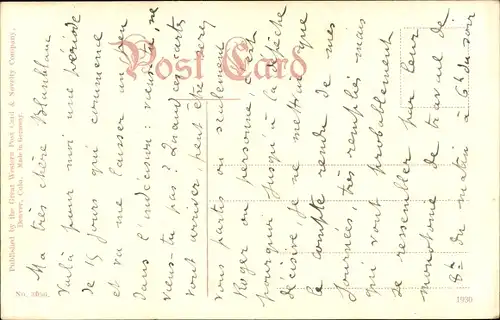 Post Card
Published by the Great Western Post Card & Novelty Company,
Denver, Colo. Made in Germany.
No. 3850.
1930
Ma très chère Blanchland
Voilà pour moi une période
de 15 jours qui commence
et va me laisser un peu
dans l'indécision: viens-tu, ne
viens-tu pas? Quand ces cartes
vont arriver, peut être serez
vous partis ou seulement
Roger ou personne. C'est
pourquoi jusqu'à la dépêche
décisive, je ne mettrai que
le compte rendu de mes
journées, très remplies mais
qui vont probablement
se ressembler par leur
monotonie de travail de
8h du matin à 6h du soir